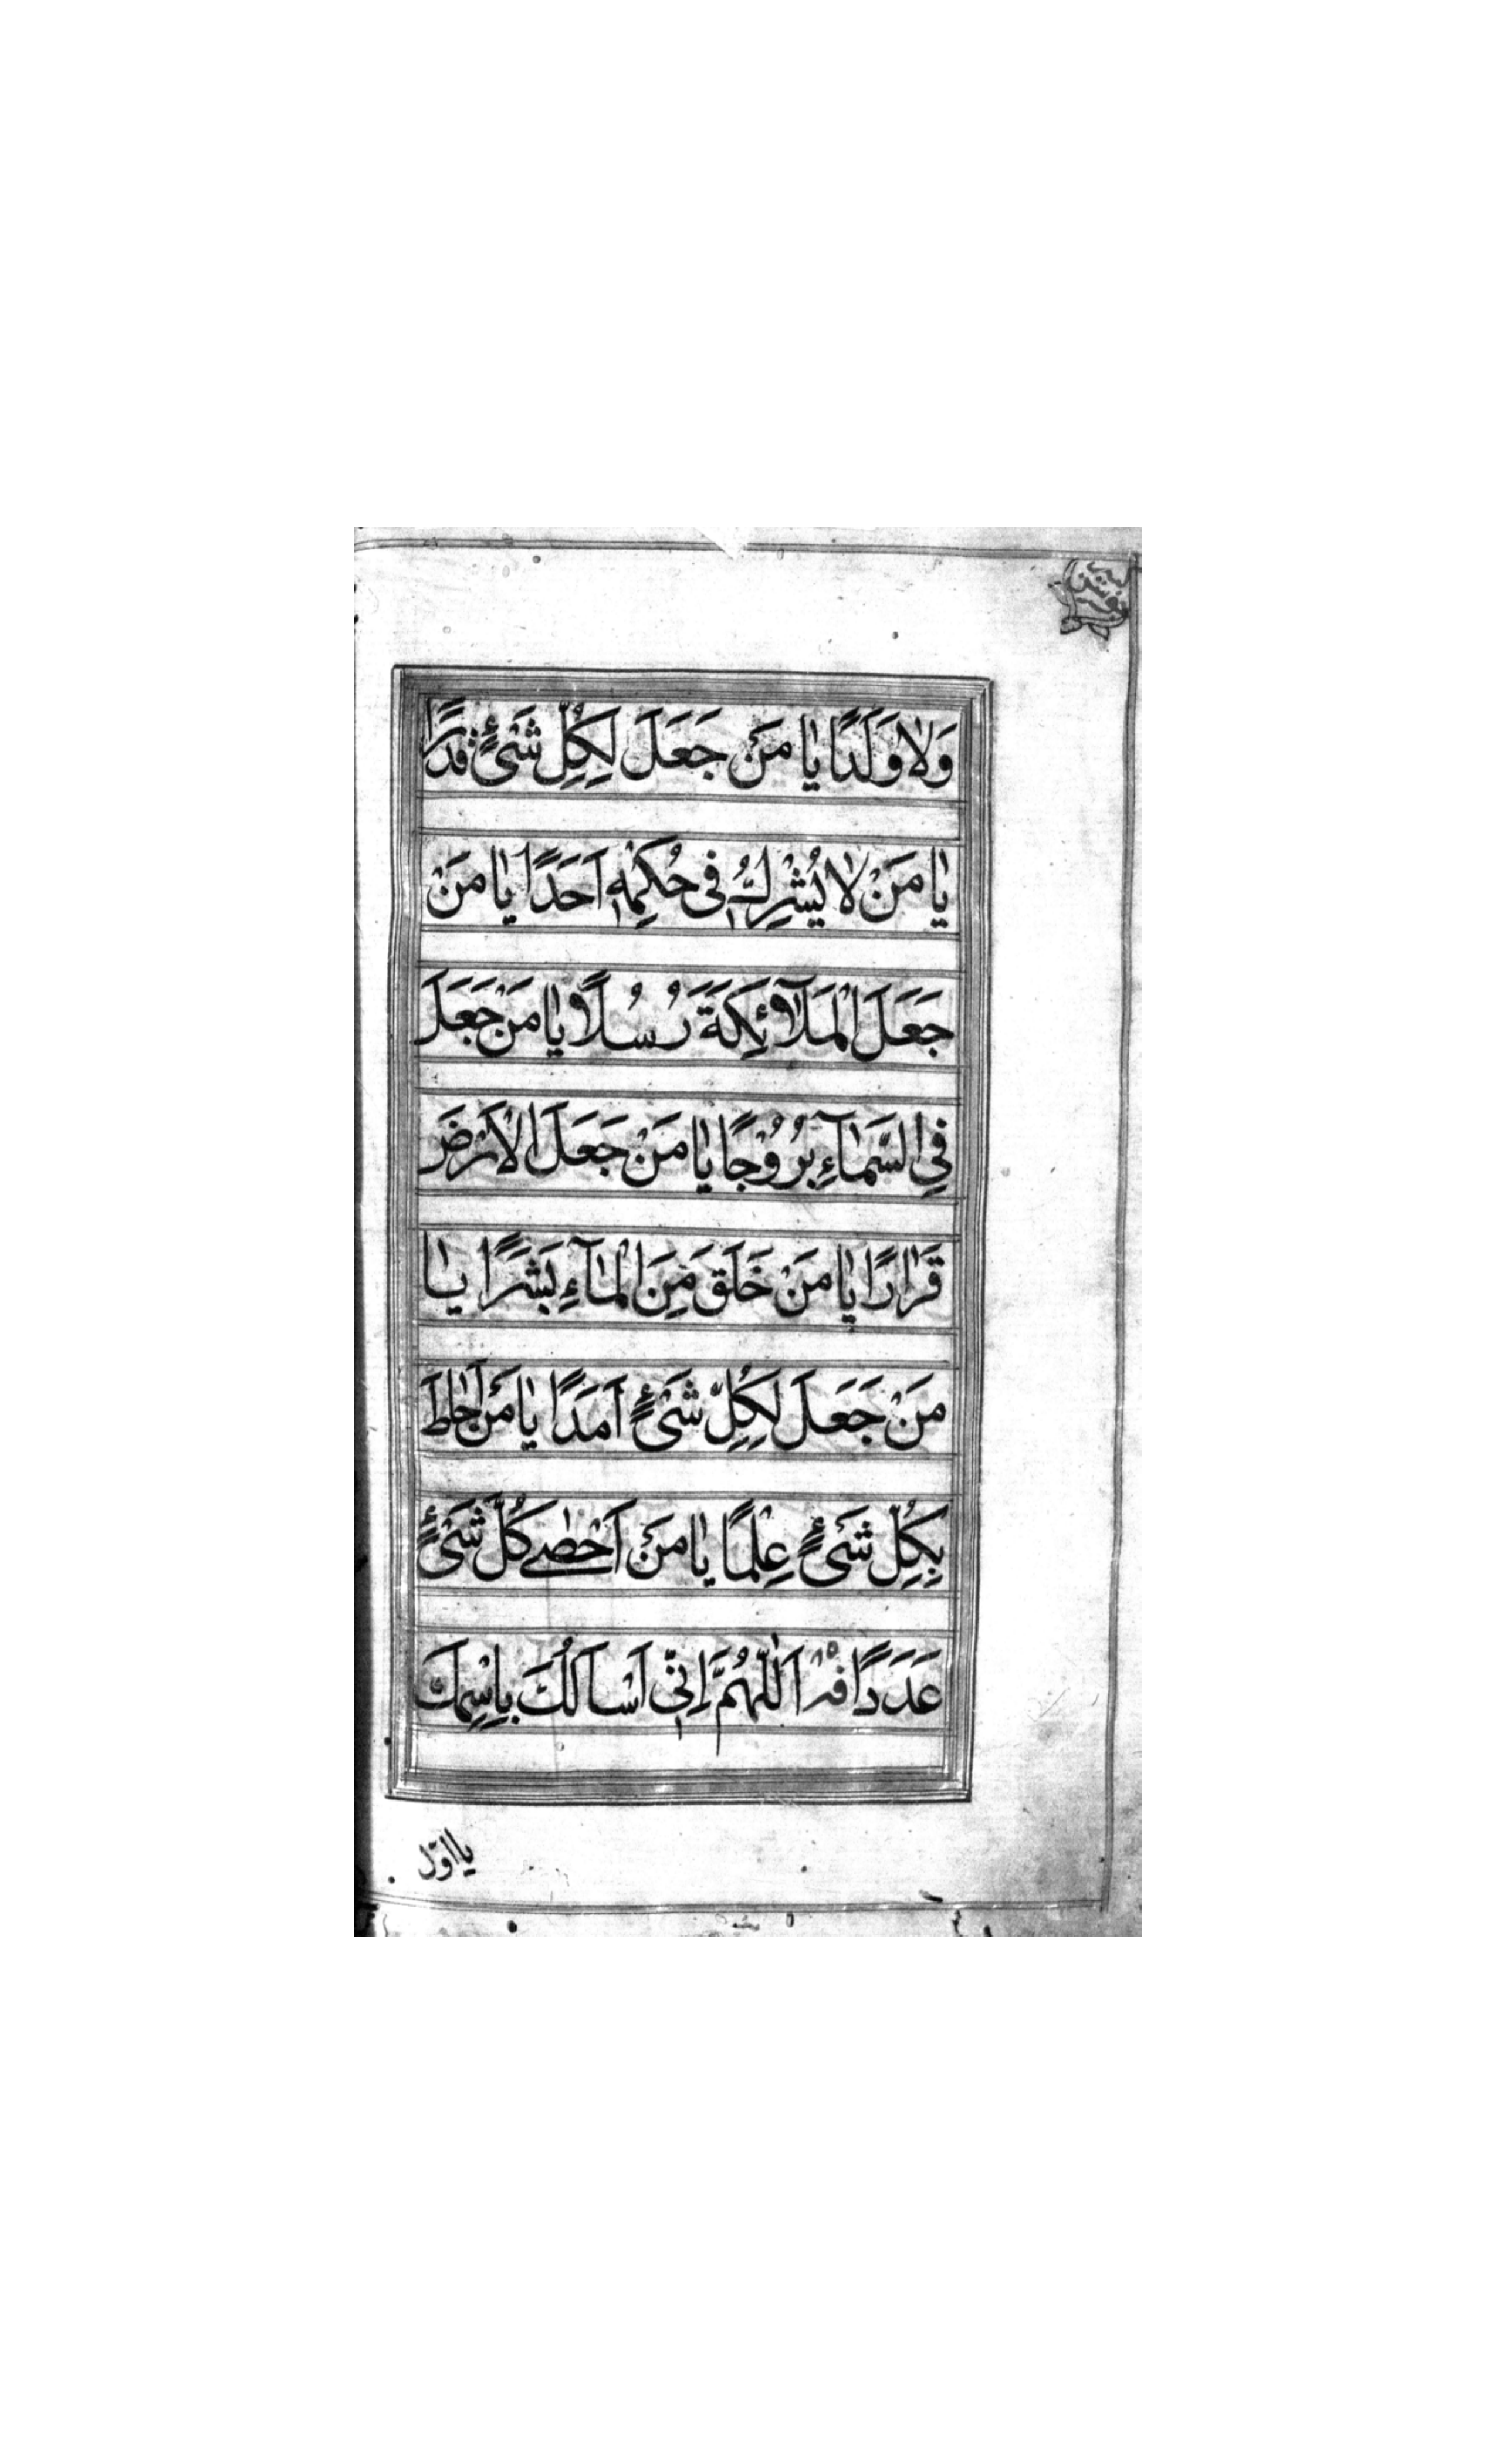 وَلٰا وَلَدًا يٰا مَنْ جَعَلَ لِكُلِّ شَيْءٍ قَدْرًا
يٰا مَنْ لٰا يُشْرِكُ فِى حُكْمِهٖ اَحَدًا يٰا مَنْ
جَعَلَ الْمَلَآئِكَةَ رُسُلًا يٰا مَنْ جَعَلَ
فِي السَّمٰآءِ بُرُوْجًا يٰا مَنْ جَعَلَ الْاَرْضَ
قَرٰارًا يٰا مَنْ خَلَقَ مِنَ الْمٰآءِ بَشَرًا يٰا
مَنْ جَعَلَ لِكُلِّ شَيْءٍ اَمَدًا يٰا مَنْ اَحٰاطَ
بِكُلِّ شَيْءٍ عِلْمًا يٰا مَنْ اَحْصٰے كُلَّ شَيْءٍ
عَدَدًا اَللّٰهُمَّ اِنِّى اَسْاَلُكَ بِاِسْمِكَ
يا اوّل